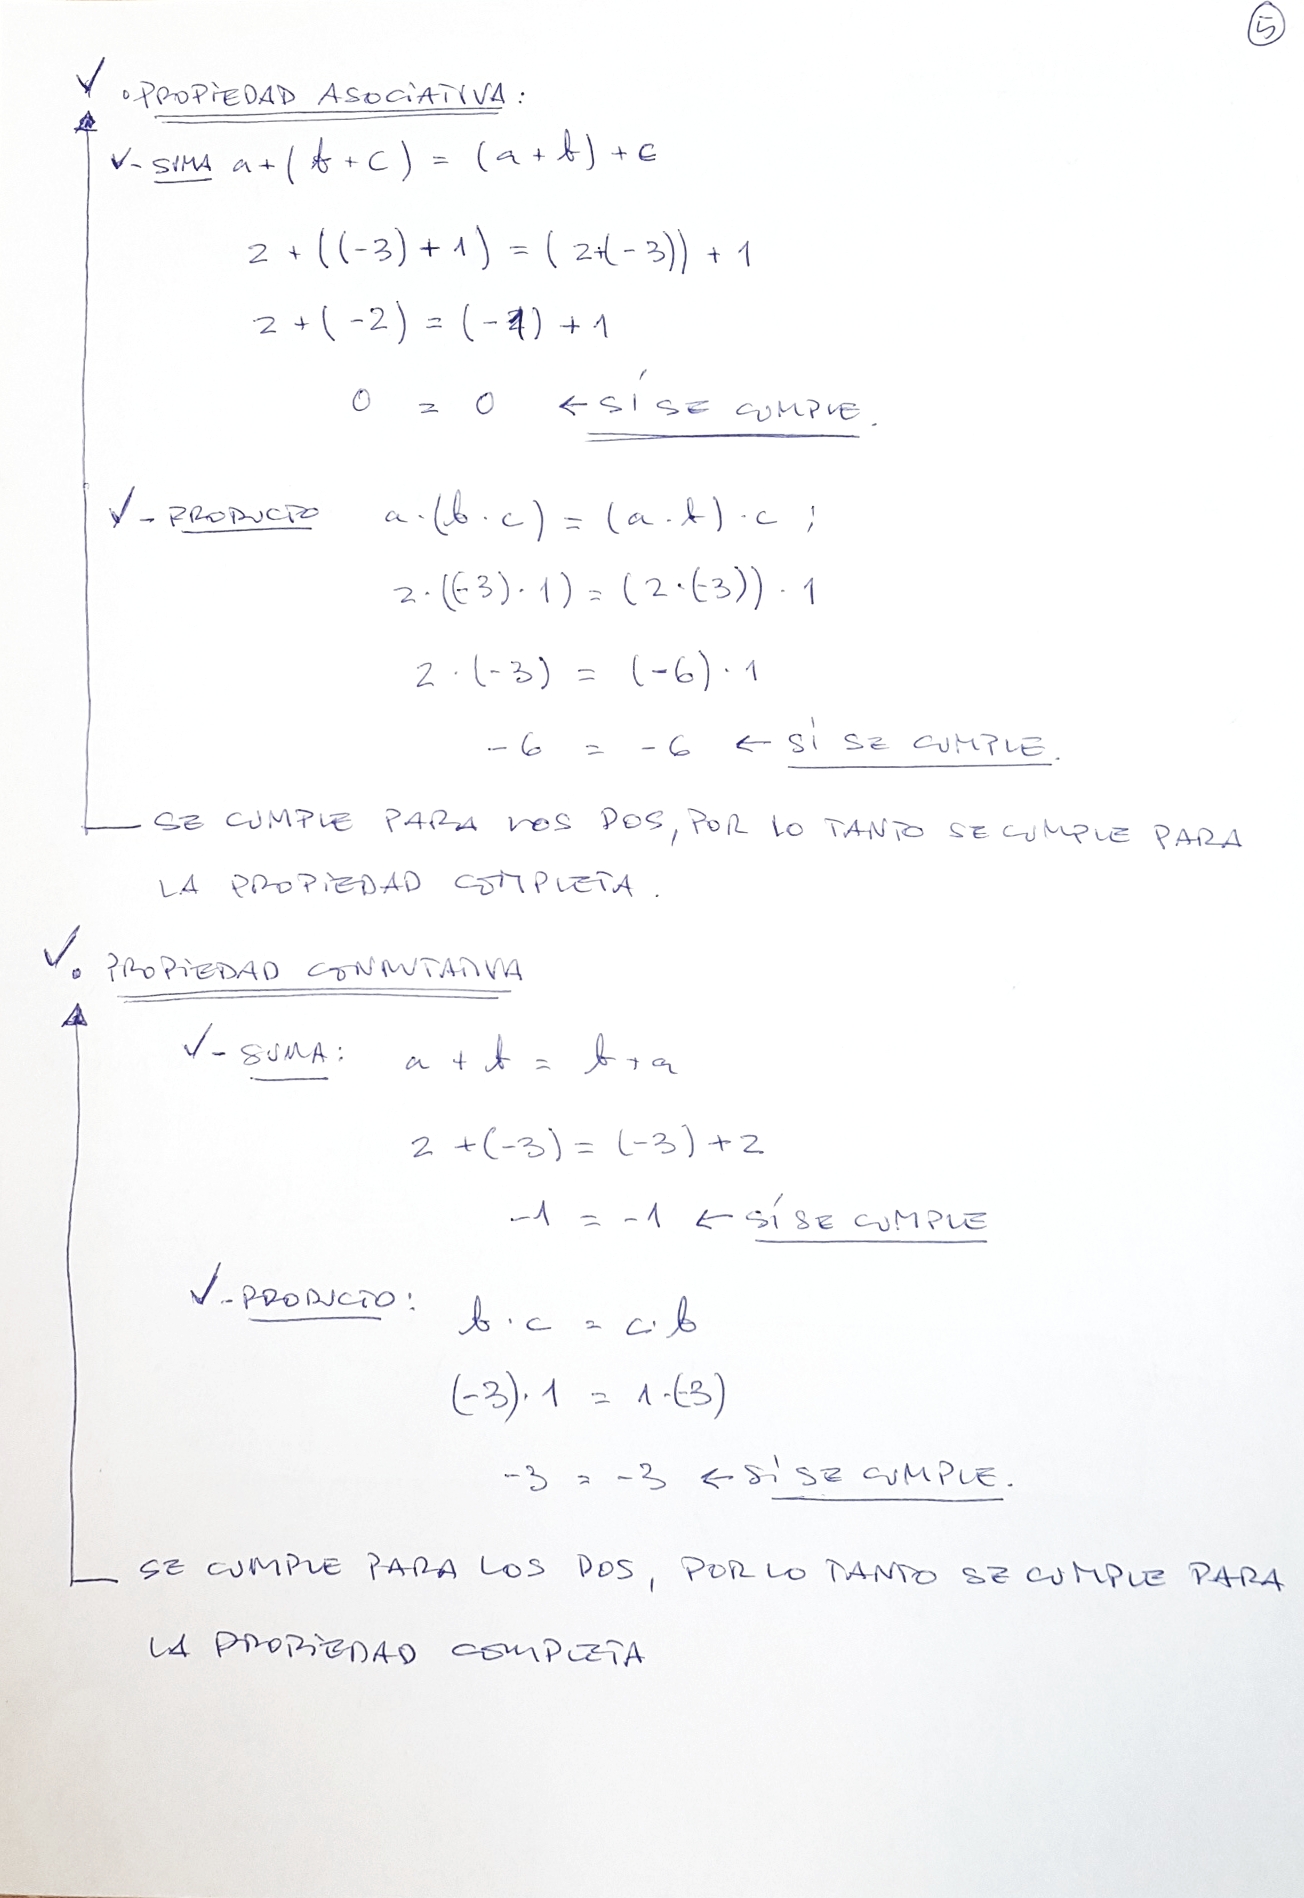 5
✓ • PROPIEDAD ASOCIATIVA:
✓- SUMA a+(b+c) = (a+b)+c
2+((-3)+1) = (2+(-3))+1
2+(-2) = (-1)+1
0 = 0 ← SÍ SE CUMPLE.
✓- PRODUCTO a·(b·c) = (a·b)·c ;
2·((-3)·1) = (2·(-3))·1
2·(-3) = (-6)·1
-6 = -6 ← SÍ SE CUMPLE.
SE CUMPLE PARA LOS DOS, POR LO TANTO SE CUMPLE PARA
LA PROPIEDAD COMPLETA.
✓• PROPIEDAD CONMUTATIVA
✓- SUMA: a+b = b+a
2+(-3) = (-3)+2
-1 = -1 ← SÍ SE CUMPLE
✓- PRODUCTO: b·c = c·b
(-3)·1 = 1·(-3)
-3 = -3 ← SÍ SE CUMPLE.
SE CUMPLE PARA LOS DOS, POR LO TANTO SE CUMPLE PARA
LA PROPIEDAD COMPLETA